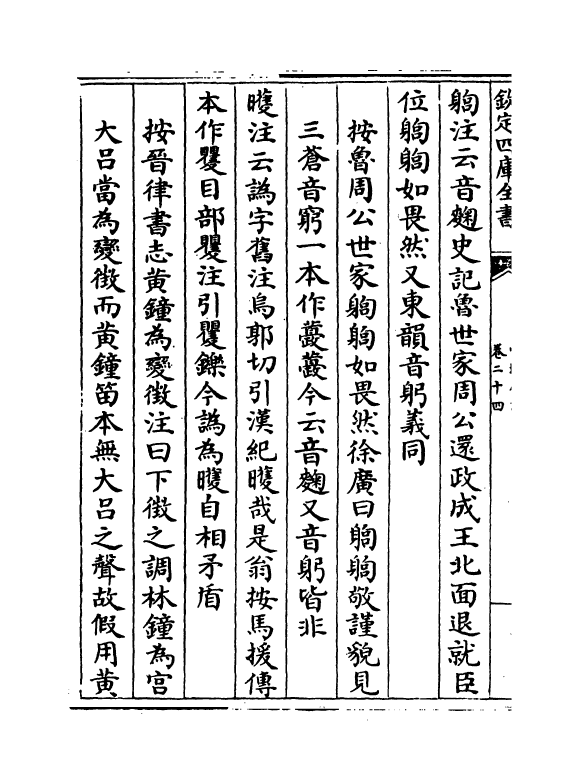 欽定四庫全書
卷二十四
匔注云音麴史記魯世家周公還政成王北面退就臣
位匔匔如畏然又東韻音躬義同
按魯周公世家匔匔如畏然徐廣曰匔匔敬謹貌見
三蒼音窮一本作夔夔今云音麴又音躬皆非
矆注云譌字舊注烏郭切引漢紀矆哉是翁按馬援傳
本作矍目部矍注引矍鑠今譌為矆自相矛盾
按晉律書志黃鐘為變徵注曰下徵之調林鐘為宮
大呂當為變徵而黃鐘笛本無大呂之聲故假用黃